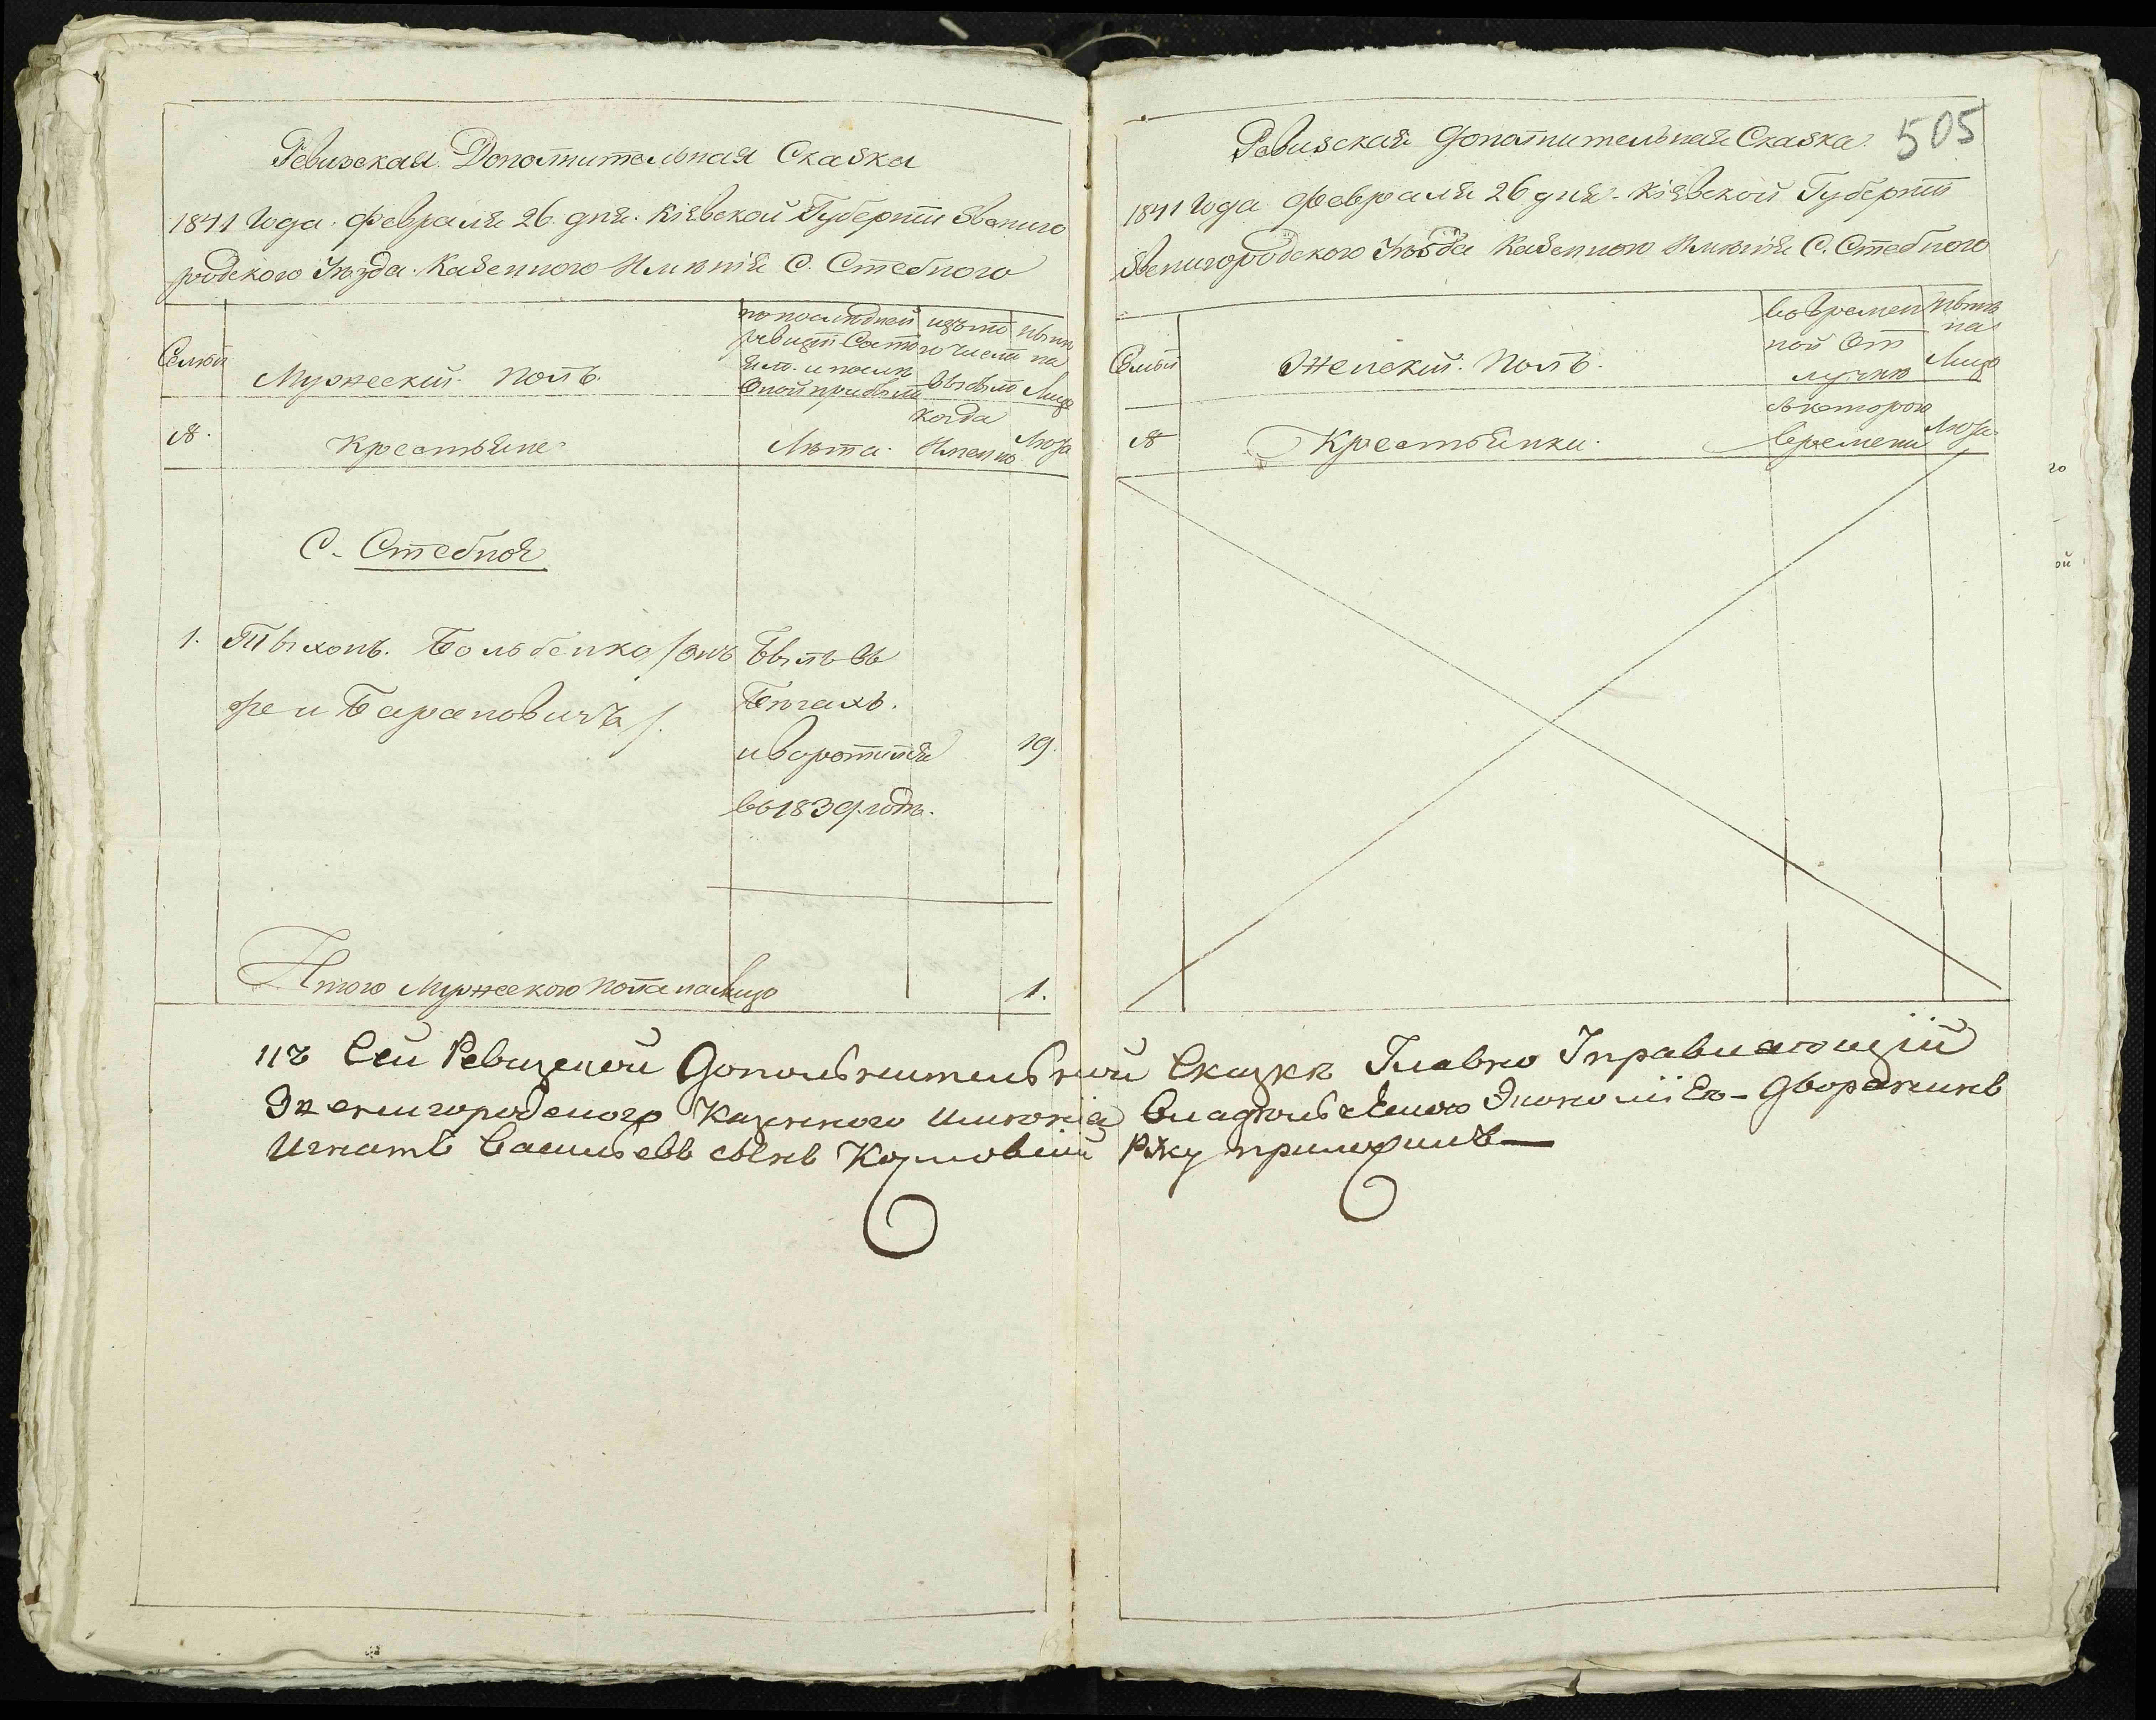 Ревизская Дополнительная Сказка
1841 Года Февраля 26 дня Кіевской Губерніи Звениго
родского Уѣзда Казенного Имѣнія С. Стебного
Семьи
Мужескій полъ.
по последней
ревизіи Состо
ит. и послѣ
оной прибыло
изъ то
го числа
выбыло
Нынѣ
на
Лицо
№.
Крестьяне
Лѣта.
когда
Имянно
Лѣта
С. Стебное
1. Тыхонъ. Больбенко /онъ
же и Барановичъ/.
Былъ въ
Бѣгахъ.
и воротился
въ 1839 годѣ.
19.
Итого Мужеского пола на лицо
1.
505
Ревизская Дополнительная Сказка
1841 Года Февраля 26 дня Кіевской Губерніи
Звенигородского Уѣзда Казенного Имѣнія С. Стебного
Семьи
Женскій. Полъ.
Во Времен
ной От
лучке
Нынѣ
на
Лицо
№
Крестьянки.
съ которого
Времени
Лѣта
Къ Сей Ревизской Дополнительной Сказкѣ Главно Управляющій
Звенигородского Казенного имѣнія Экономіи Ея Дворянинъ
Игнатъ Васильевъ сынъ Козловскій Руку приложилъ
го
ой